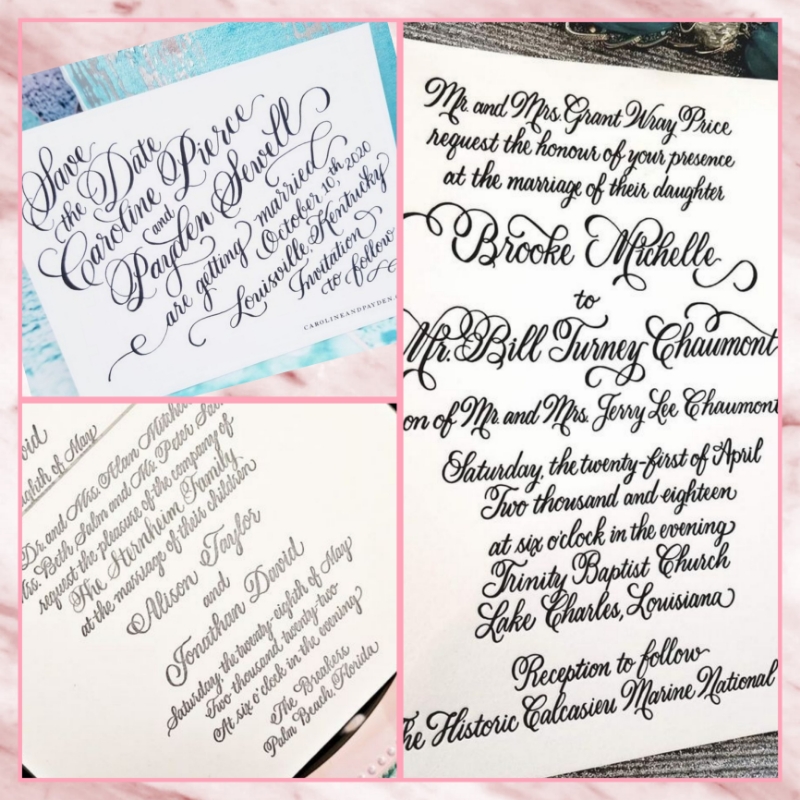 Save
the Date
Caroline Pierce
and
Payden Sewell
are getting married
October 10, 2020
Louisville, Kentucky
Invitation
to follow
CAROLINEANDPAYDEN
eighth of May
Dr. and Mrs. Alan
Mrs. Beth Salm and Mr. Peter
request the pleasure of the company of
The Sternheim Family
at the marriage of their children
Alison Taylor
and
Jonathan David
Saturday, the twenty-eighth of May
Two thousand twenty-two
At six o'clock in the evening
The Breakers
Palm Beach, Florida
Mr. and Mrs. Grant Wray Price
request the honour of your presence
at the marriage of their daughter
Brooke Michelle
to
Mr. Bill Turney Chaumont
on of Mr. and Mrs. Jerry Lee Chaumont
Saturday, the twenty-first of April
Two thousand and eighteen
at six o'clock in the evening
Trinity Baptist Church
Lake Charles, Louisiana
Reception to follow
The Historic Calcasieu Marine National